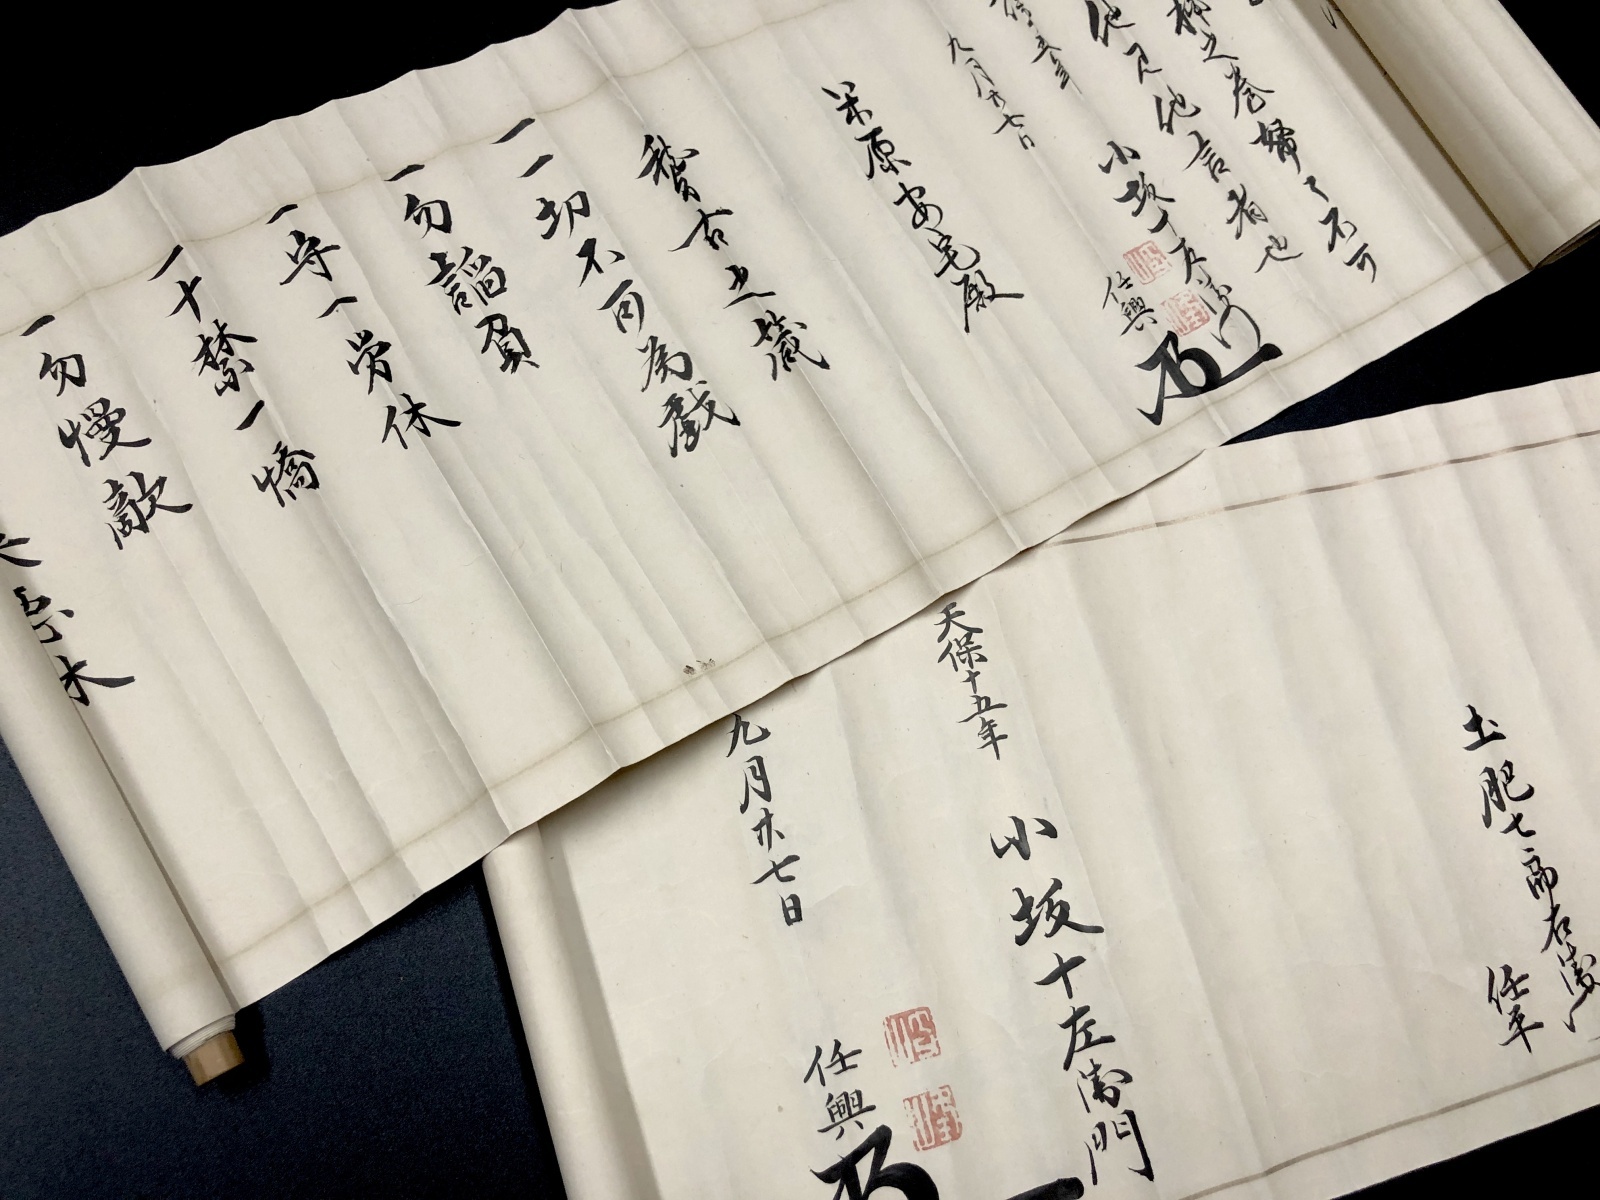 他見他言者也
九月廿七日
小坂十左衛門
任興
米原安宅殿
稽古之箴
一一切不可為戯
一勿謟負
一守一労休
一十禁一憍
一勿慢敵
土肥七郎右衛門
任平
天保十五年
小坂十左衛門
九月廿七日
任興